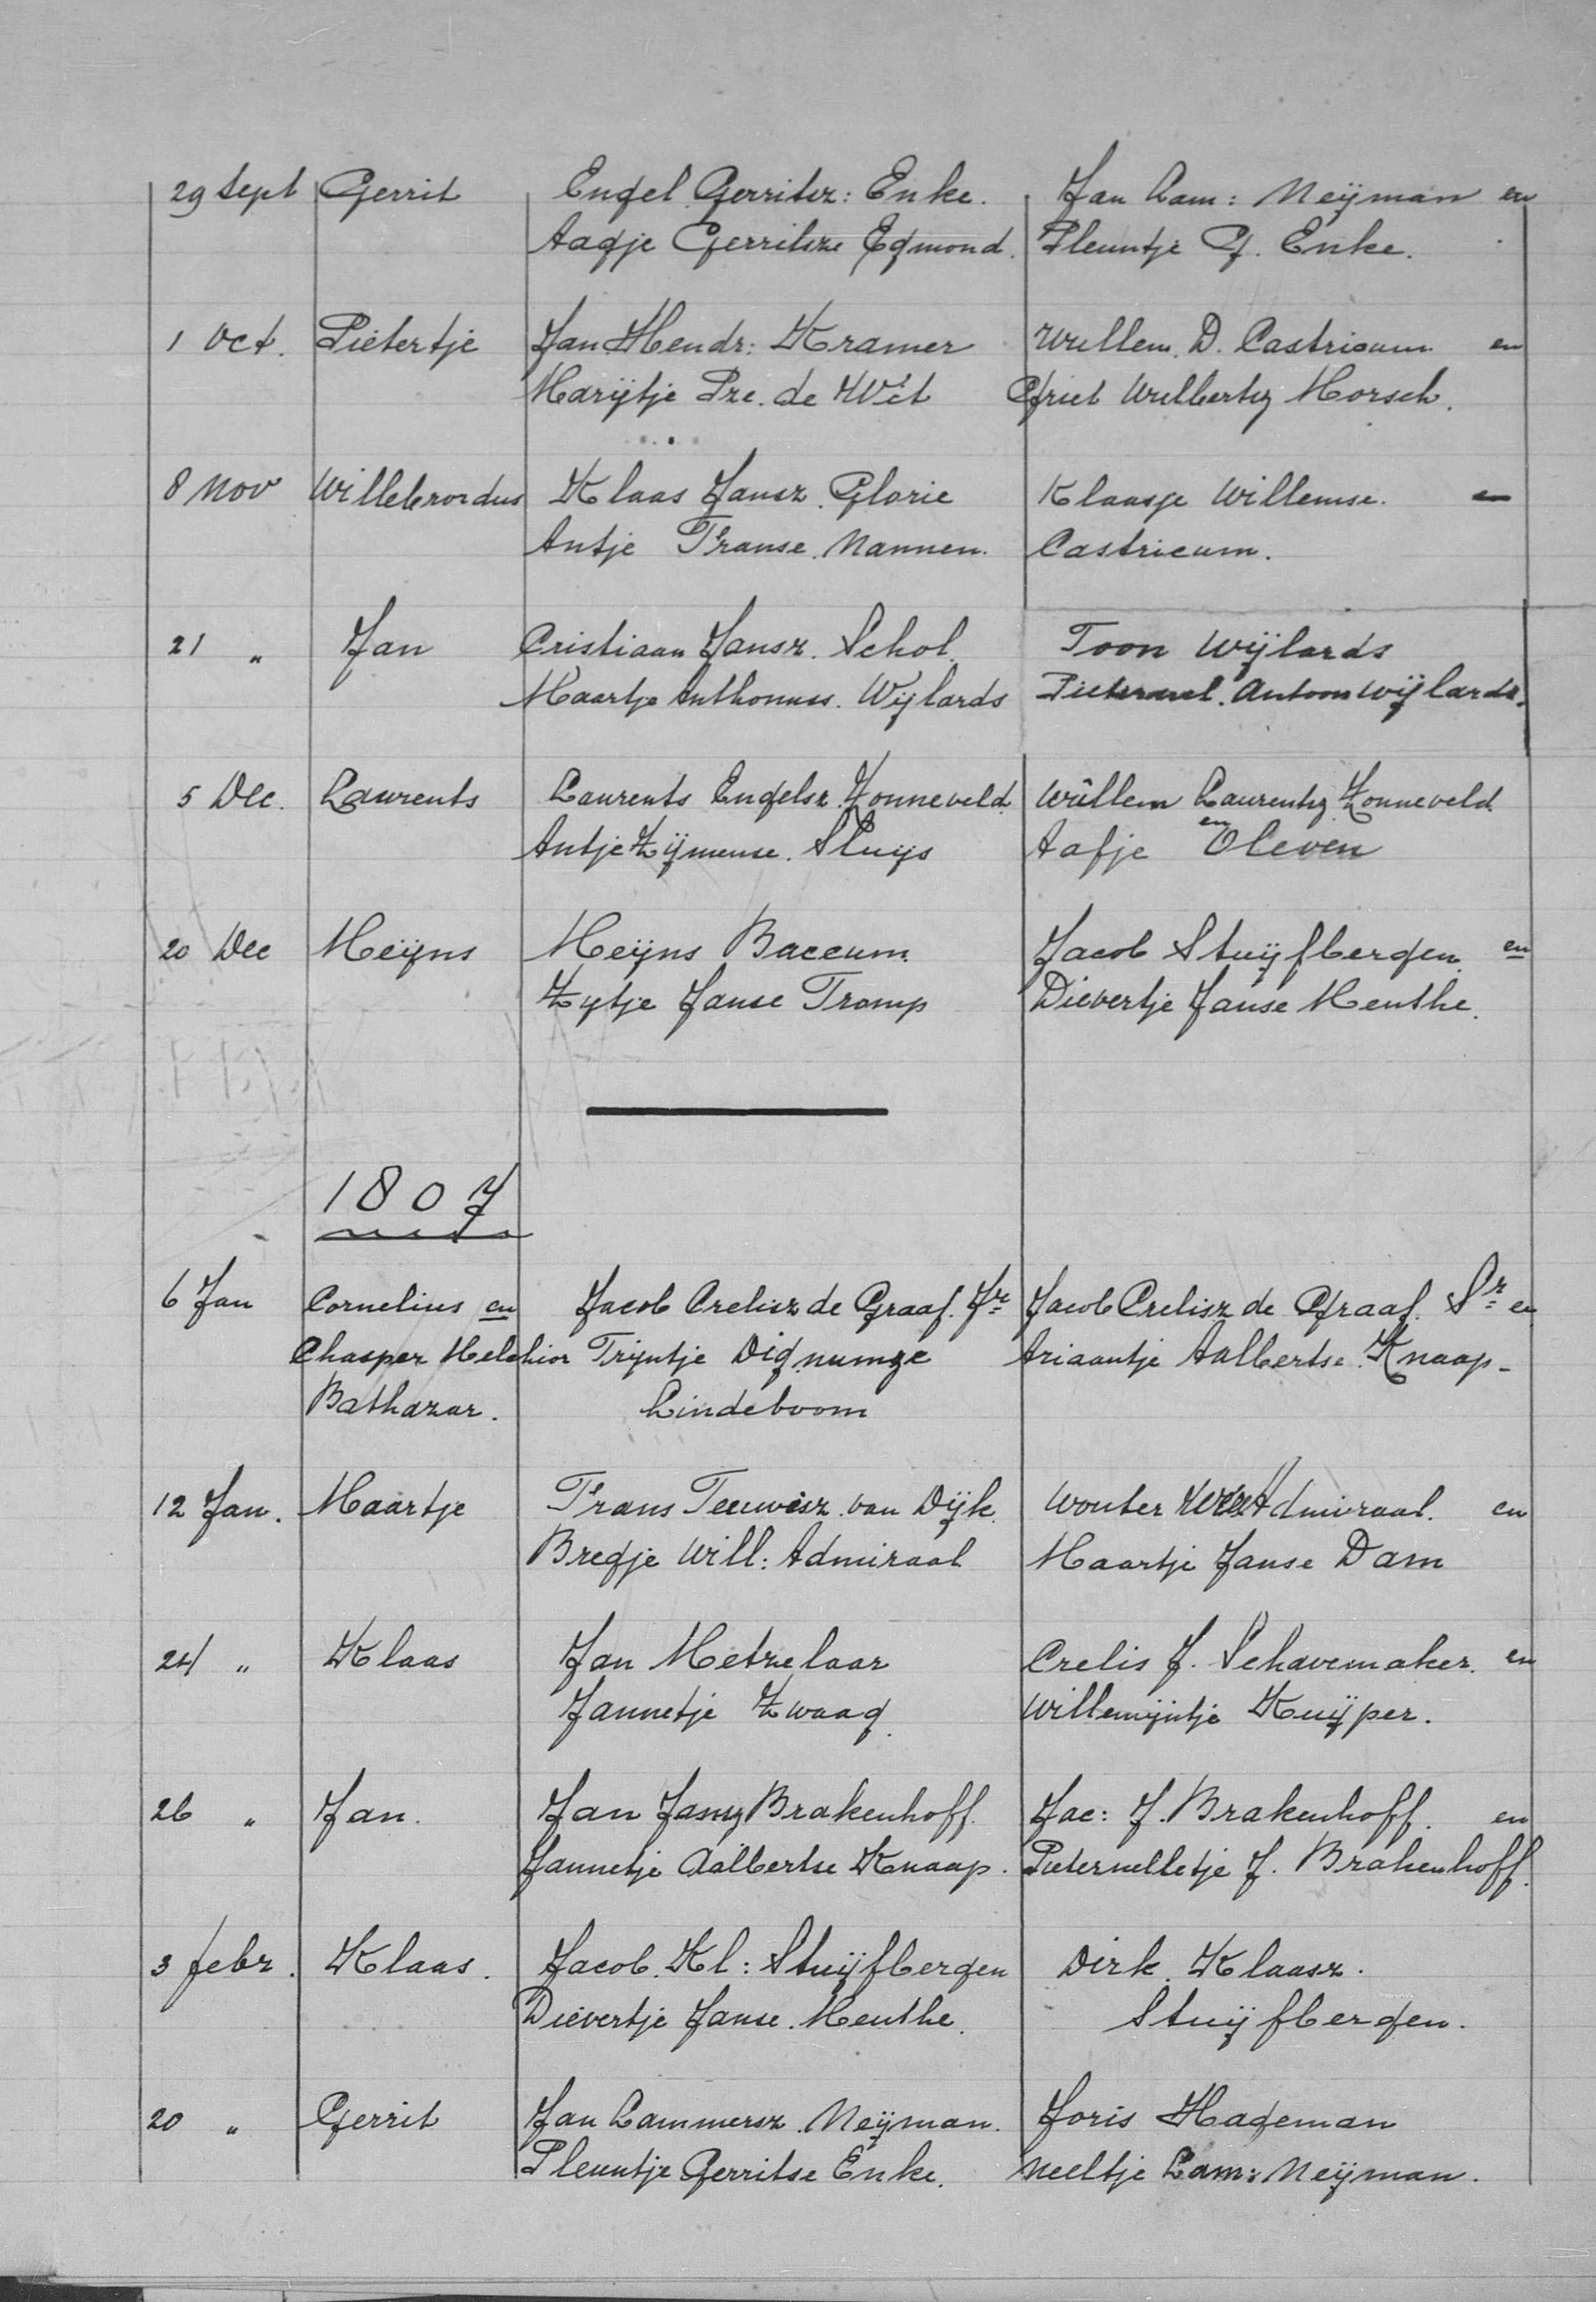 29 Sept Gerrit Engel Gerritsz: Enke. Jan Lam: Neÿman en
Aagje Gerritsze Egmond. Pleuntje G. Enke.
1 Oct. Pietertje Jan Hendr: Kramer Willem. D. Castricum en
Marÿtje Pze. de Wit Griet Wulbertsz Morsch.
8 Nov Willebrordus Klaas Jansz. Glorie Klaasje Willemse. en
Antje Franse. Nannen. Castricum.
21 " Jan Cristiaan Jansz. Schol. Toon Wÿlards
Maartje Anthonuss. Wÿlards Pieternel. Antoon Wÿlards.
5 Dec. Laurents Laurents Engelsz. Zonneveld. Willem Laurentsz Zonneveld.
Antje Zÿmense. Sluÿs Aafje en Oleven
20 Dec Meÿns Meÿns Baccum. Jacob Stuÿfbergen en
Zytje Janse Tromp Dievertje Janse Menthe.
1807
6 Jan Cornelius en Jacob Crelisz de Graaf. Jr Jacob Crelisz de Graaf. Sr en
Chasper Melchior Trÿntje Dignumze Ariaantje Aalbertse. Knaap-
Bathazar. Lindeboom
12 Jan. Maartje Frans Teeuwisz. van Dÿk. Wouter Admiraal. en
Bregje Will: Admiraal Maartje Janse Dam
24 " Klaas Jan Metzelaar Crelis J. Schavemaker. en
Jannetje Zwaag. Willemÿntje Kuÿper.
26 " Jan. Jan Jansz Brakenhoff. Jac: J. Brakenhoff. en
Jannetje Aalbertse Knaap. Pieternelletje J. Brakenhoff.
3 febr. Klaas. Jacob. Kl: Stuÿfbergen Dirk. Klaasz.
Dievertje Janse. Menthe. Stuÿfbergen.
20 " Gerrit Jan Lammersz. Neÿman. Joris Hageman
Pleuntje Gerritse Enke. Neeltje Lam: Neÿman.